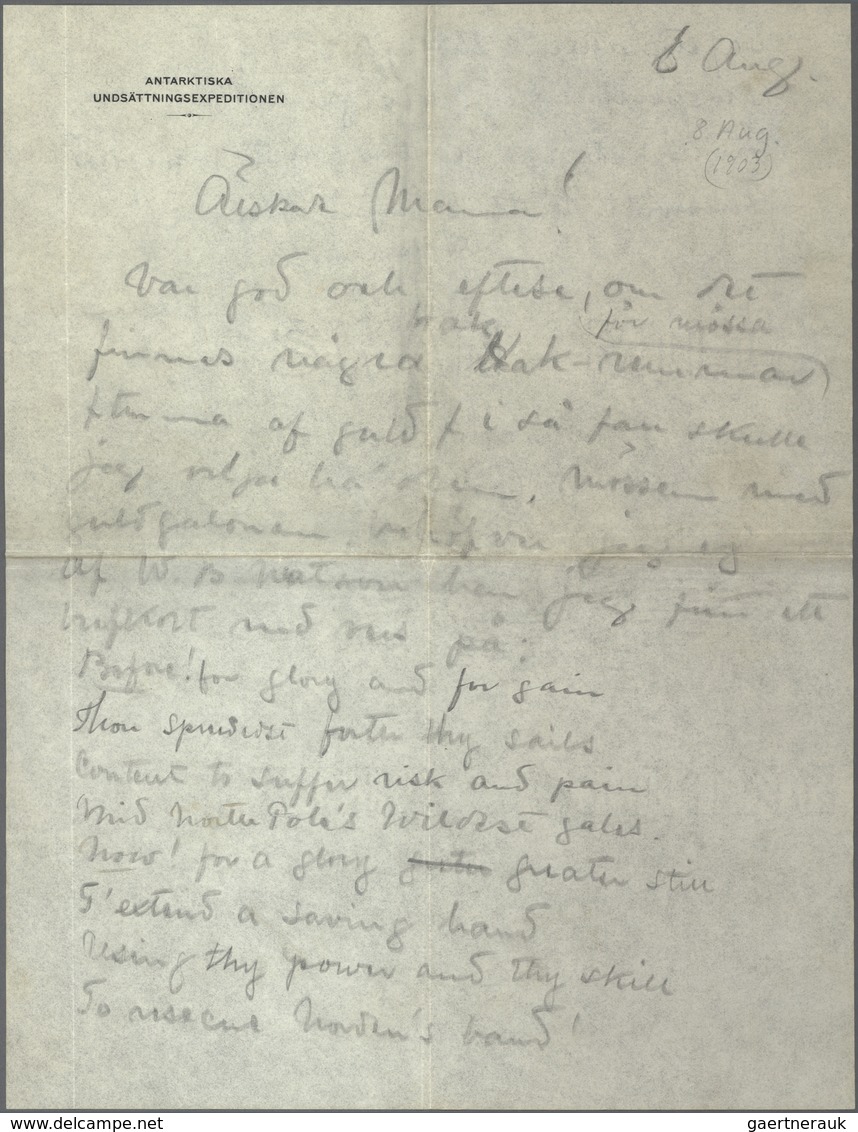 ANTARKTISKA
UNDSÄTTNINGSEXPEDITIONEN
8 Aug.
8 Aug.
(1903)
Älskade Mamma!
Var god och eftese, om det
för mössa
finnas några Hak-remmar
af guld i så fall skulle
jag vilja ha dem, mössen med
guldgalonen behöfver jag ej
Af W. B. Watson har jag fått ett
brefkort med vers på:
Before! for glory and for gain
Thou spreadst forth thy sails
Content to suffer risk and pain
Mid North Pole's Wildest gales.
Now! for a glory greater still
T'extend a saving hand
Using thy power and thy skill
To rescue Norden's band!
www.delcampe.net
gaertnerauk